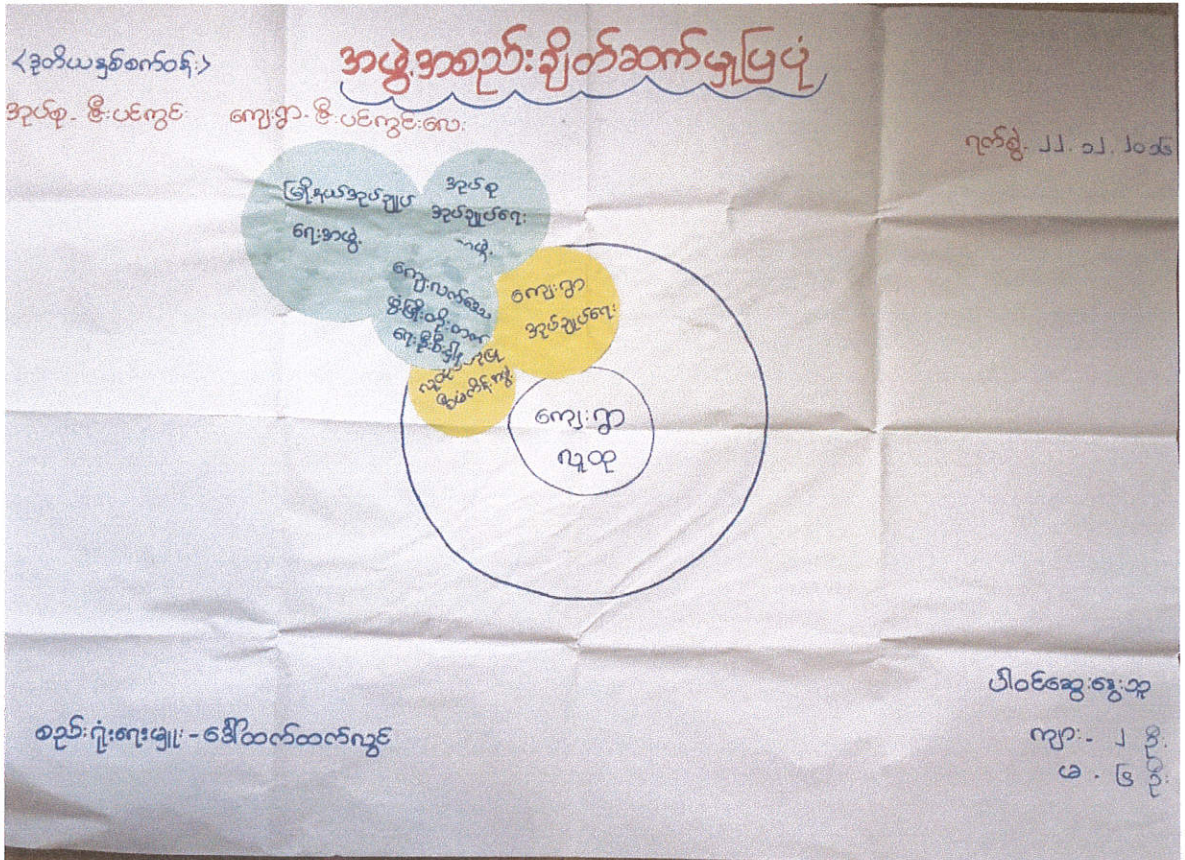 <ဒုတိယနှစ်စက်ဝန်း>
အဖွဲ့အစည်းချိတ်ဆက်မှုပြပုံ
အုပ်စု - ဇီးပင်ကွင်း ကျေးရွာ - ဇီးပင်ကွင်းလေး
ရက်စွဲ - ၂၂.၁၂.၂၀၁၆
မြို့နယ်အုပ်ချုပ်
ရေးအဖွဲ့
အုပ်စု
အုပ်ချုပ်ရေး
အဖွဲ့
ကျေးလက်ဒေသ
ဖွံ့ဖြိုးတိုးတက်
ရေးဦးစီးဌာန
ကျေးရွာ
အုပ်ချုပ်ရေး
ကျေးရွာ
လူထု
စည်းရုံးရေးမှူး - ဒေါ်ထက်ထက်လွင်
ပါဝင်ဆွေးနွေးသူ
ကျား - ၂ ဦး
မ - ၆ ဦး